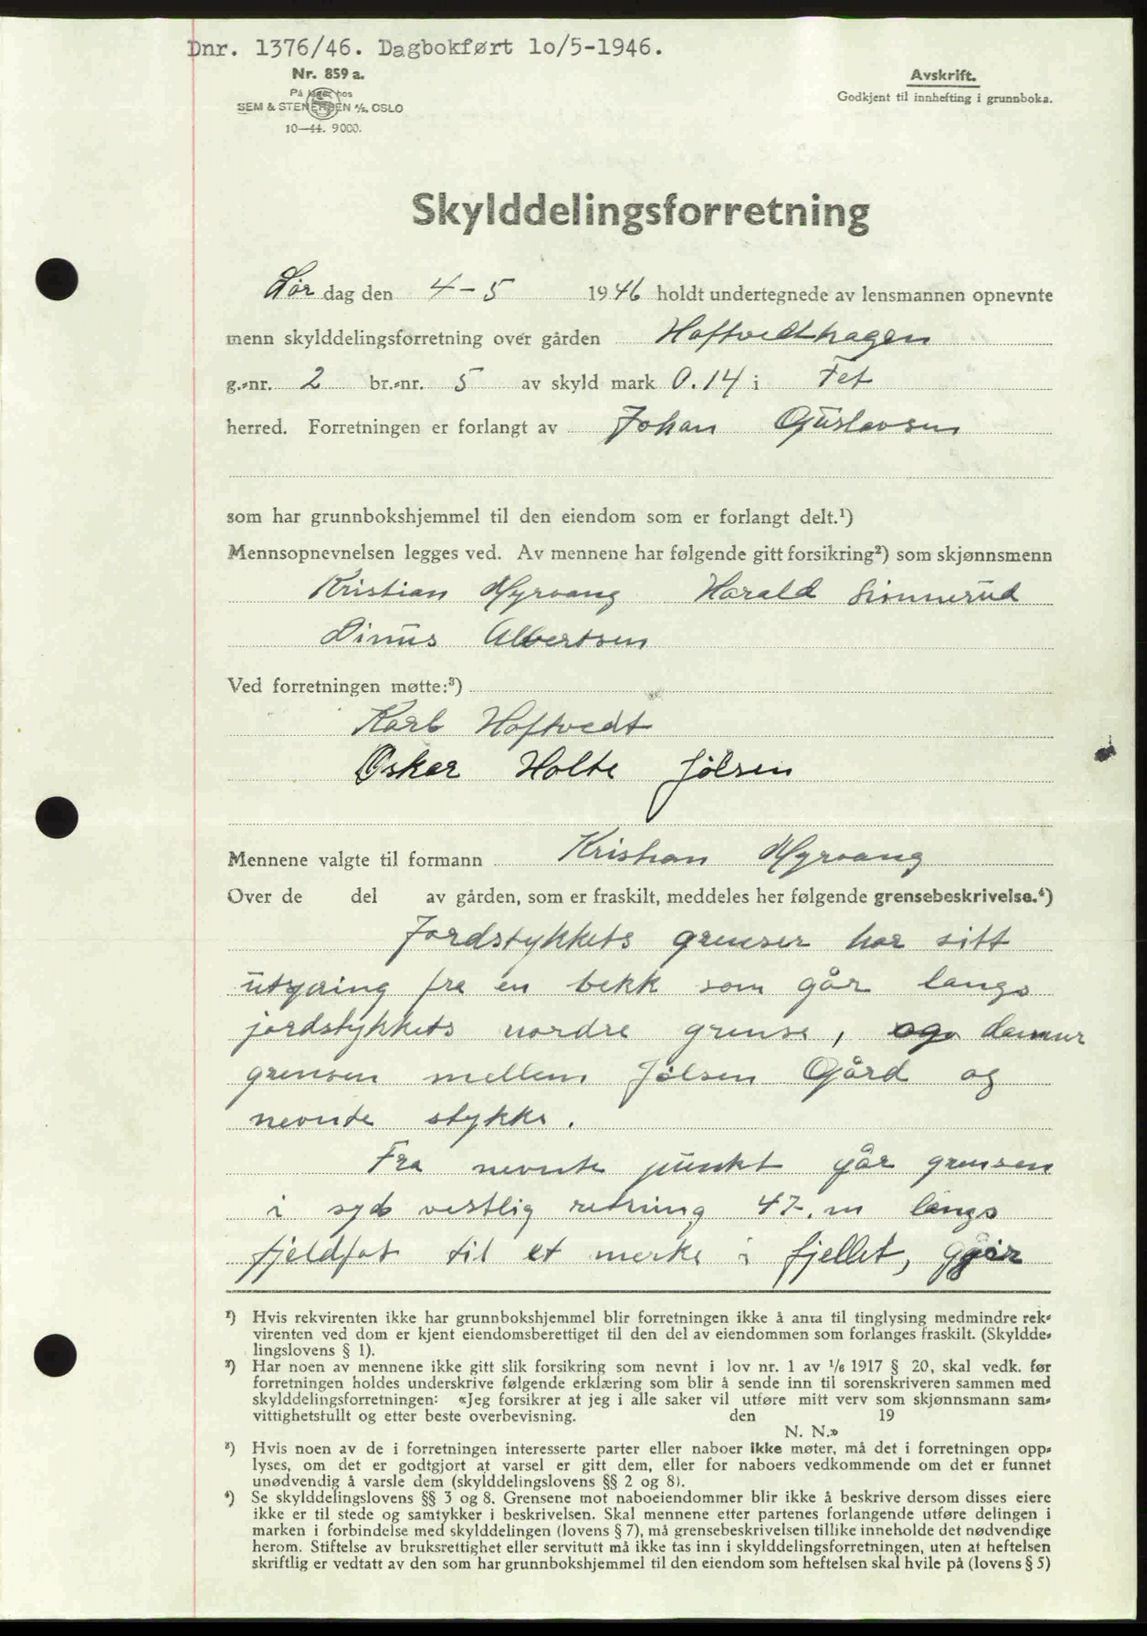 Dnr. 1376/46. Dagbokført 1o/5-1946.
Nr. 859 a.
På lager hos
SEM & STENERSEN A/S. OSLO
10—44. 9000.
Avskrift.
Godkjent til innhefting i grunnboka.
Skylddelingsforretning
Lør dag den 4-5 1946 holdt undertegnede av lensmannen opnevnte
menn skylddelingsforretning over gården Hoftvedthagen
g.-nr. 2 br.-nr. 5 av skyld mark 0.14 i Fet
herred. Forretningen er forlangt av Johan Gustavsen
som har grunnbokshjemmel til den eiendom som er forlangt delt.¹)
Mennsopnevnelsen legges ved. Av mennene har følgende gitt forsikring²) som skjønnsmenn
Kristian Myrvang Harald Sinnerud
Dinus Albertsen
Ved forretningen møtte:³)
Karl Hoftvedt
Oskar Holte Jølsen
Mennene valgte til formann Kristian Myrvang
Over de del av gården, som er fraskilt, meddeles her følgende grensebeskrivelse.⁴)
Jordstykkets grenser har sitt
utspring fra en bekk som går langs
jordstykkets nordre grense, og danner
grensen mellem Jølsen Gård og
nevnte stykke.
Fra nevnte punkt går grensen
i syd vestlig retning 47. m langs
fjeldfot til et merke i fjellet, går
¹) Hvis rekvirenten ikke har grunnbokshjemmel blir forretningen ikke å anta til tinglysing medmindre rek-
virenten ved dom er kjent eiendomsberettiget til den del av eiendommen som forlanges fraskilt. (Skyldde-
lingslovens § 1).
²) Har noen av mennene ikke gitt slik forsikring som nevnt i lov nr. 1 av 1/6 1917 § 20, skal vedk. før
forretningen holdes underskrive følgende erklæring som blir å sende inn til sorenskriveren sammen med
skylddelingsforretningen: «Jeg forsikrer at jeg i alle saker vil utføre mitt verv som skjønnsmann sam-
vittighetsfullt og etter beste overbevisning. den 19
N. N.»
³) Hvis noen av de i forretningen interesserte parter eller naboer ikke møter, må det i forretningen opp-
lyses, om det er godtgjort at varsel er gitt dem, eller for naboers vedkommende om det er funnet
unødvendig å varsle dem (skylddelingslovens §§ 2 og 8).
⁴) Se skylddelingslovens §§ 3 og 8. Grensene mot naboeiendommer blir ikke å beskrive dersom disses eiere
ikke er til stede og samtykker i beskrivelsen. Skal mennene etter partenes forlangende utføre delingen i
marken i forbindelse med skylddelingen (lovens § 7), må grensebeskrivelsen tillike inneholde det nødvendige
herom. Stiftelse av bruksrettighet eller servitutt må ikke tas inn i skylddelingsforretningen, uten at heftelsen
skriftlig er vedtatt av den som har grunnbokshjemmel til den eiendom som heftelsen skal hvile på (lovens § 5)